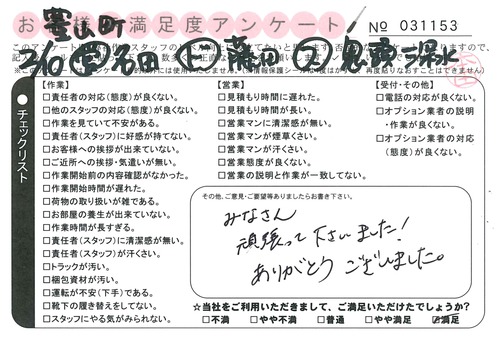 お客様満足度アンケート
No 031153
豊山町
【作業】
□責任者の対応(態度)が良くない。
□他のスタッフの対応(態度)が良くない。
□作業を見ていて不安がある。
□責任者(スタッフ)に好感が持てない。
□お客様への挨拶が出来ていない。
□ご近所への挨拶・気遣いが無い。
□作業開始前の内容確認がなかった。
□作業開始時間が遅れた。
□荷物の取り扱いが雑である。
□お部屋の養生が出来ていない。
□作業時間が長すぎる。
□責任者(スタッフ)に清潔感が無い。
□責任者(スタッフ)が汗くさい。
□トラックが汚い。
□梱包資材が汚い。
□運転が不安(下手)である。
□靴下の履き替えをしてない。
□スタッフにやる気がみられない。
【営業】
□見積もり時間に遅れた。
□見積もり時間が長い。
□営業マンに清潔感が無い。
□営業マンが煙草くさい。
□営業マンが汗くさい。
□営業態度が良くない。
□営業の説明と作業が一致してない。
【受付・その他】
□電話の対応が良くない。
□オプション業者の説明
・作業が良くない。
□オプション業者の対応
(態度)が良くない。
チェックリスト
その他、ご意見・ご要望等ありましたらお書き下さい。
みなさん
頑張って下さいました!
ありがとうございました。
☆当社をご利用いただきまして、ご満足いただけたでしょうか?
□不満 □やや不満 □普通 □やや満足 ☑満足